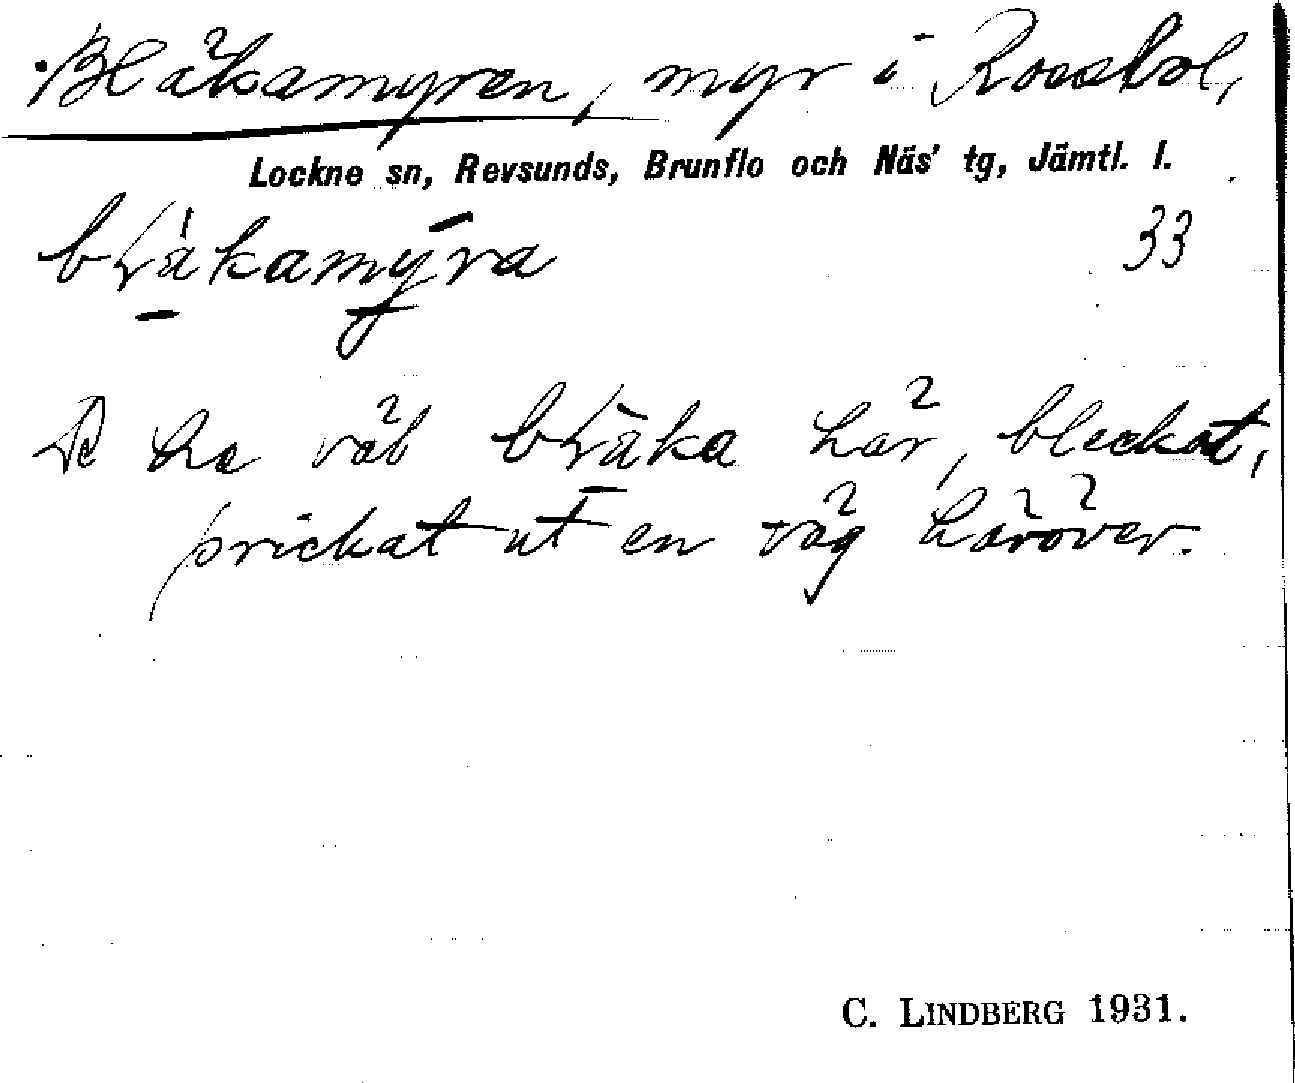 Bläkamyren, myr i Rossbol,
Lockne sn, Revsunds, Brunflo och Näs' tg, Jämtl. l.
bläkamýra 33
De ha väl bläka här, bleckat,
prickat ut en väg häröver.
C. LINDBERG 1931.